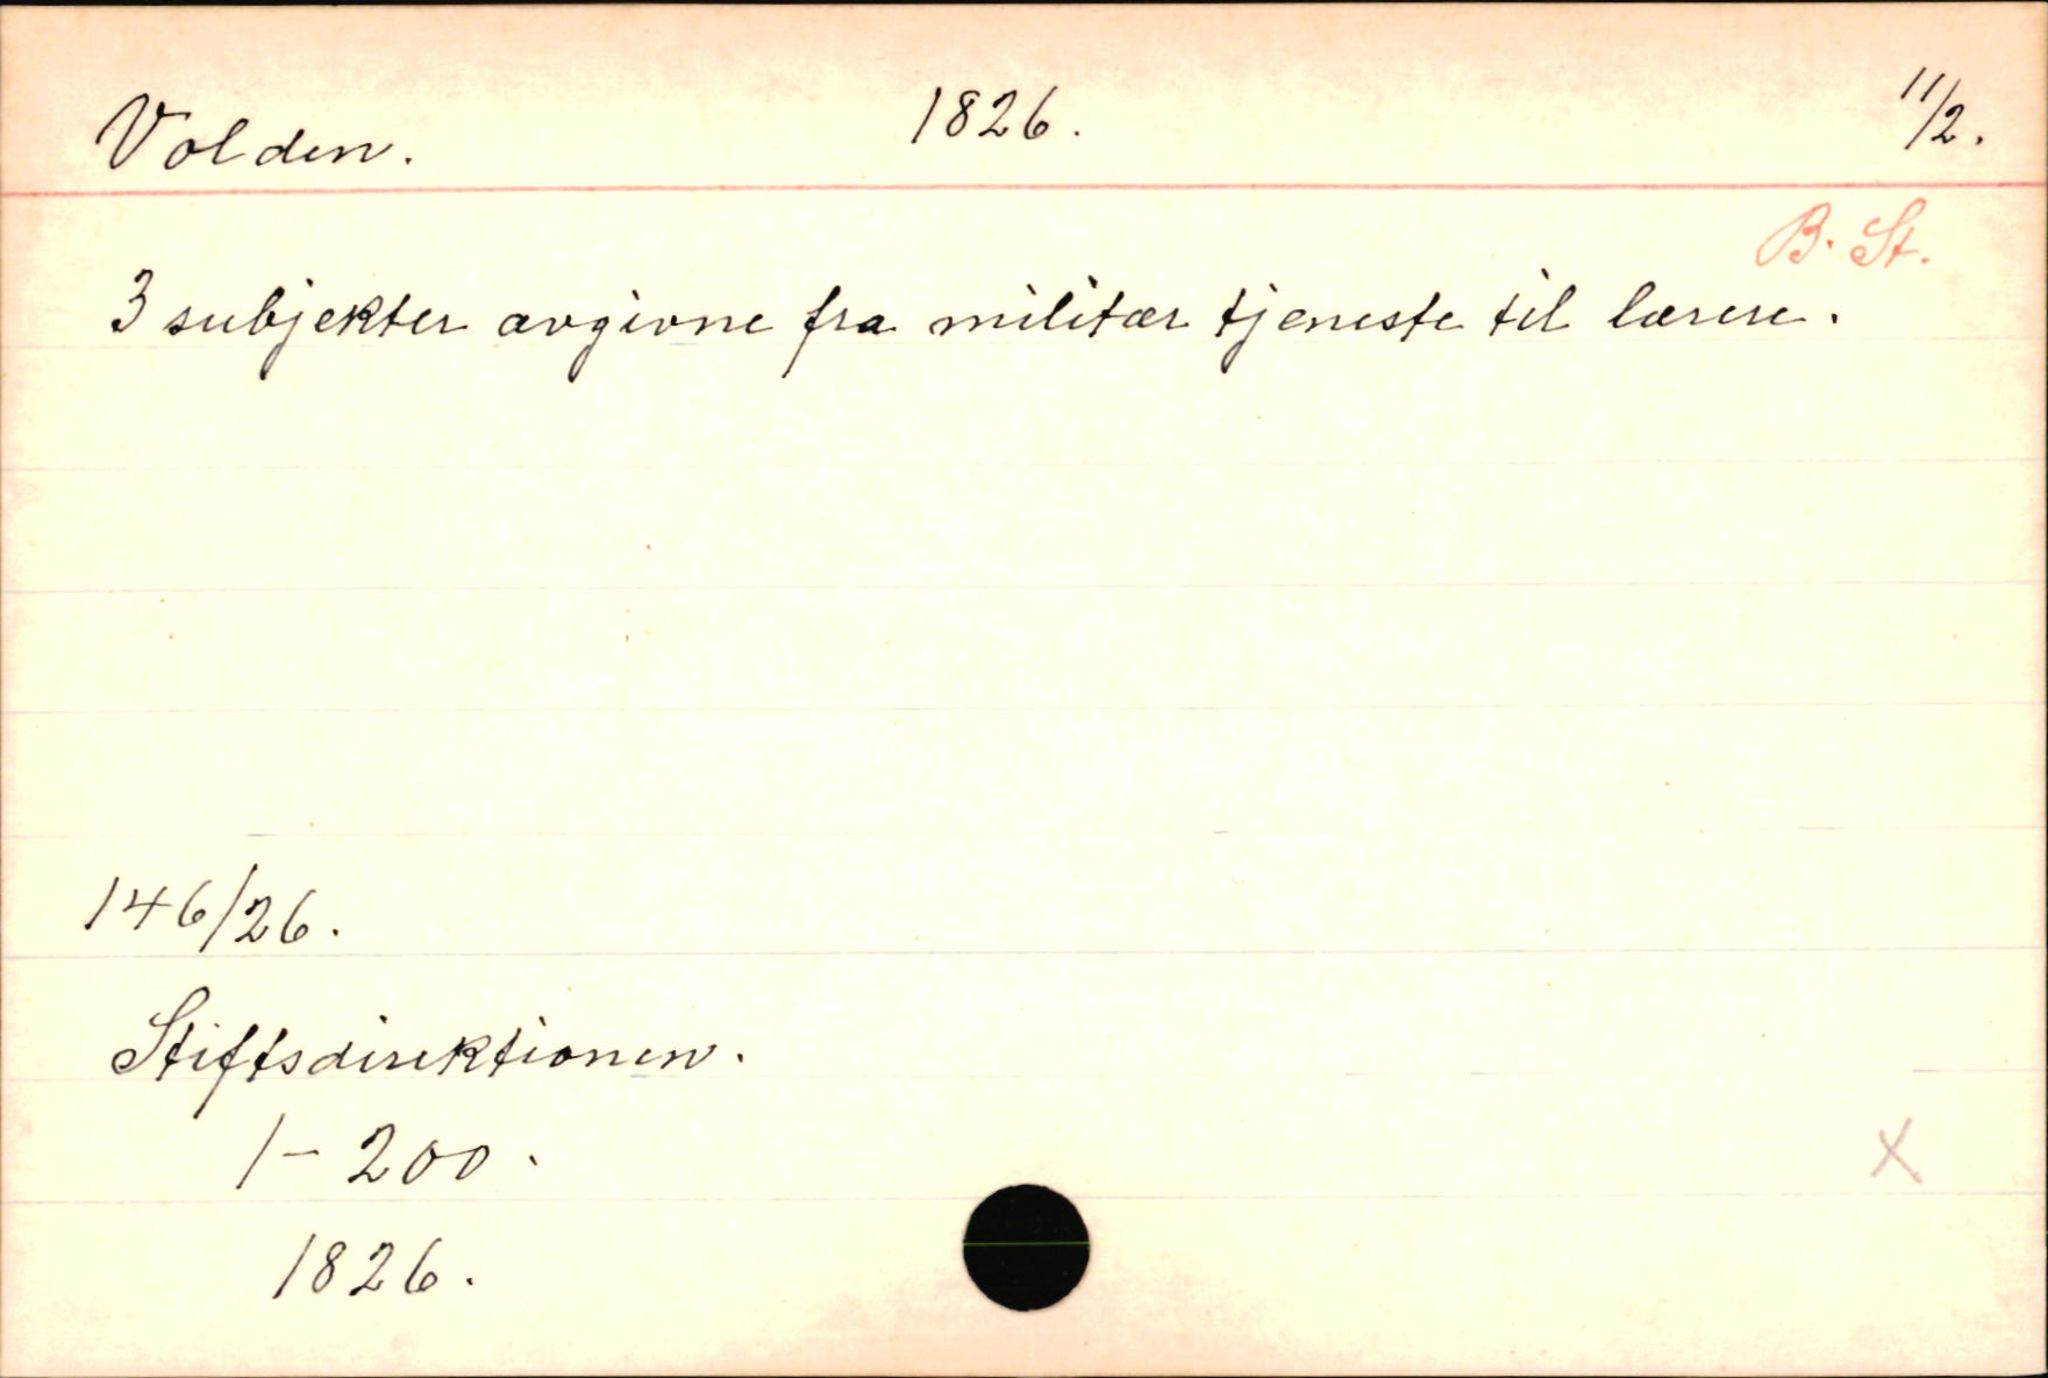 Volden. 1826. 11/2.
B. St.
3 subjekter avgivne fra militær tjeneste til lærere.
146/26.
Stiftsdirektionen.
1-200.
X
1826.